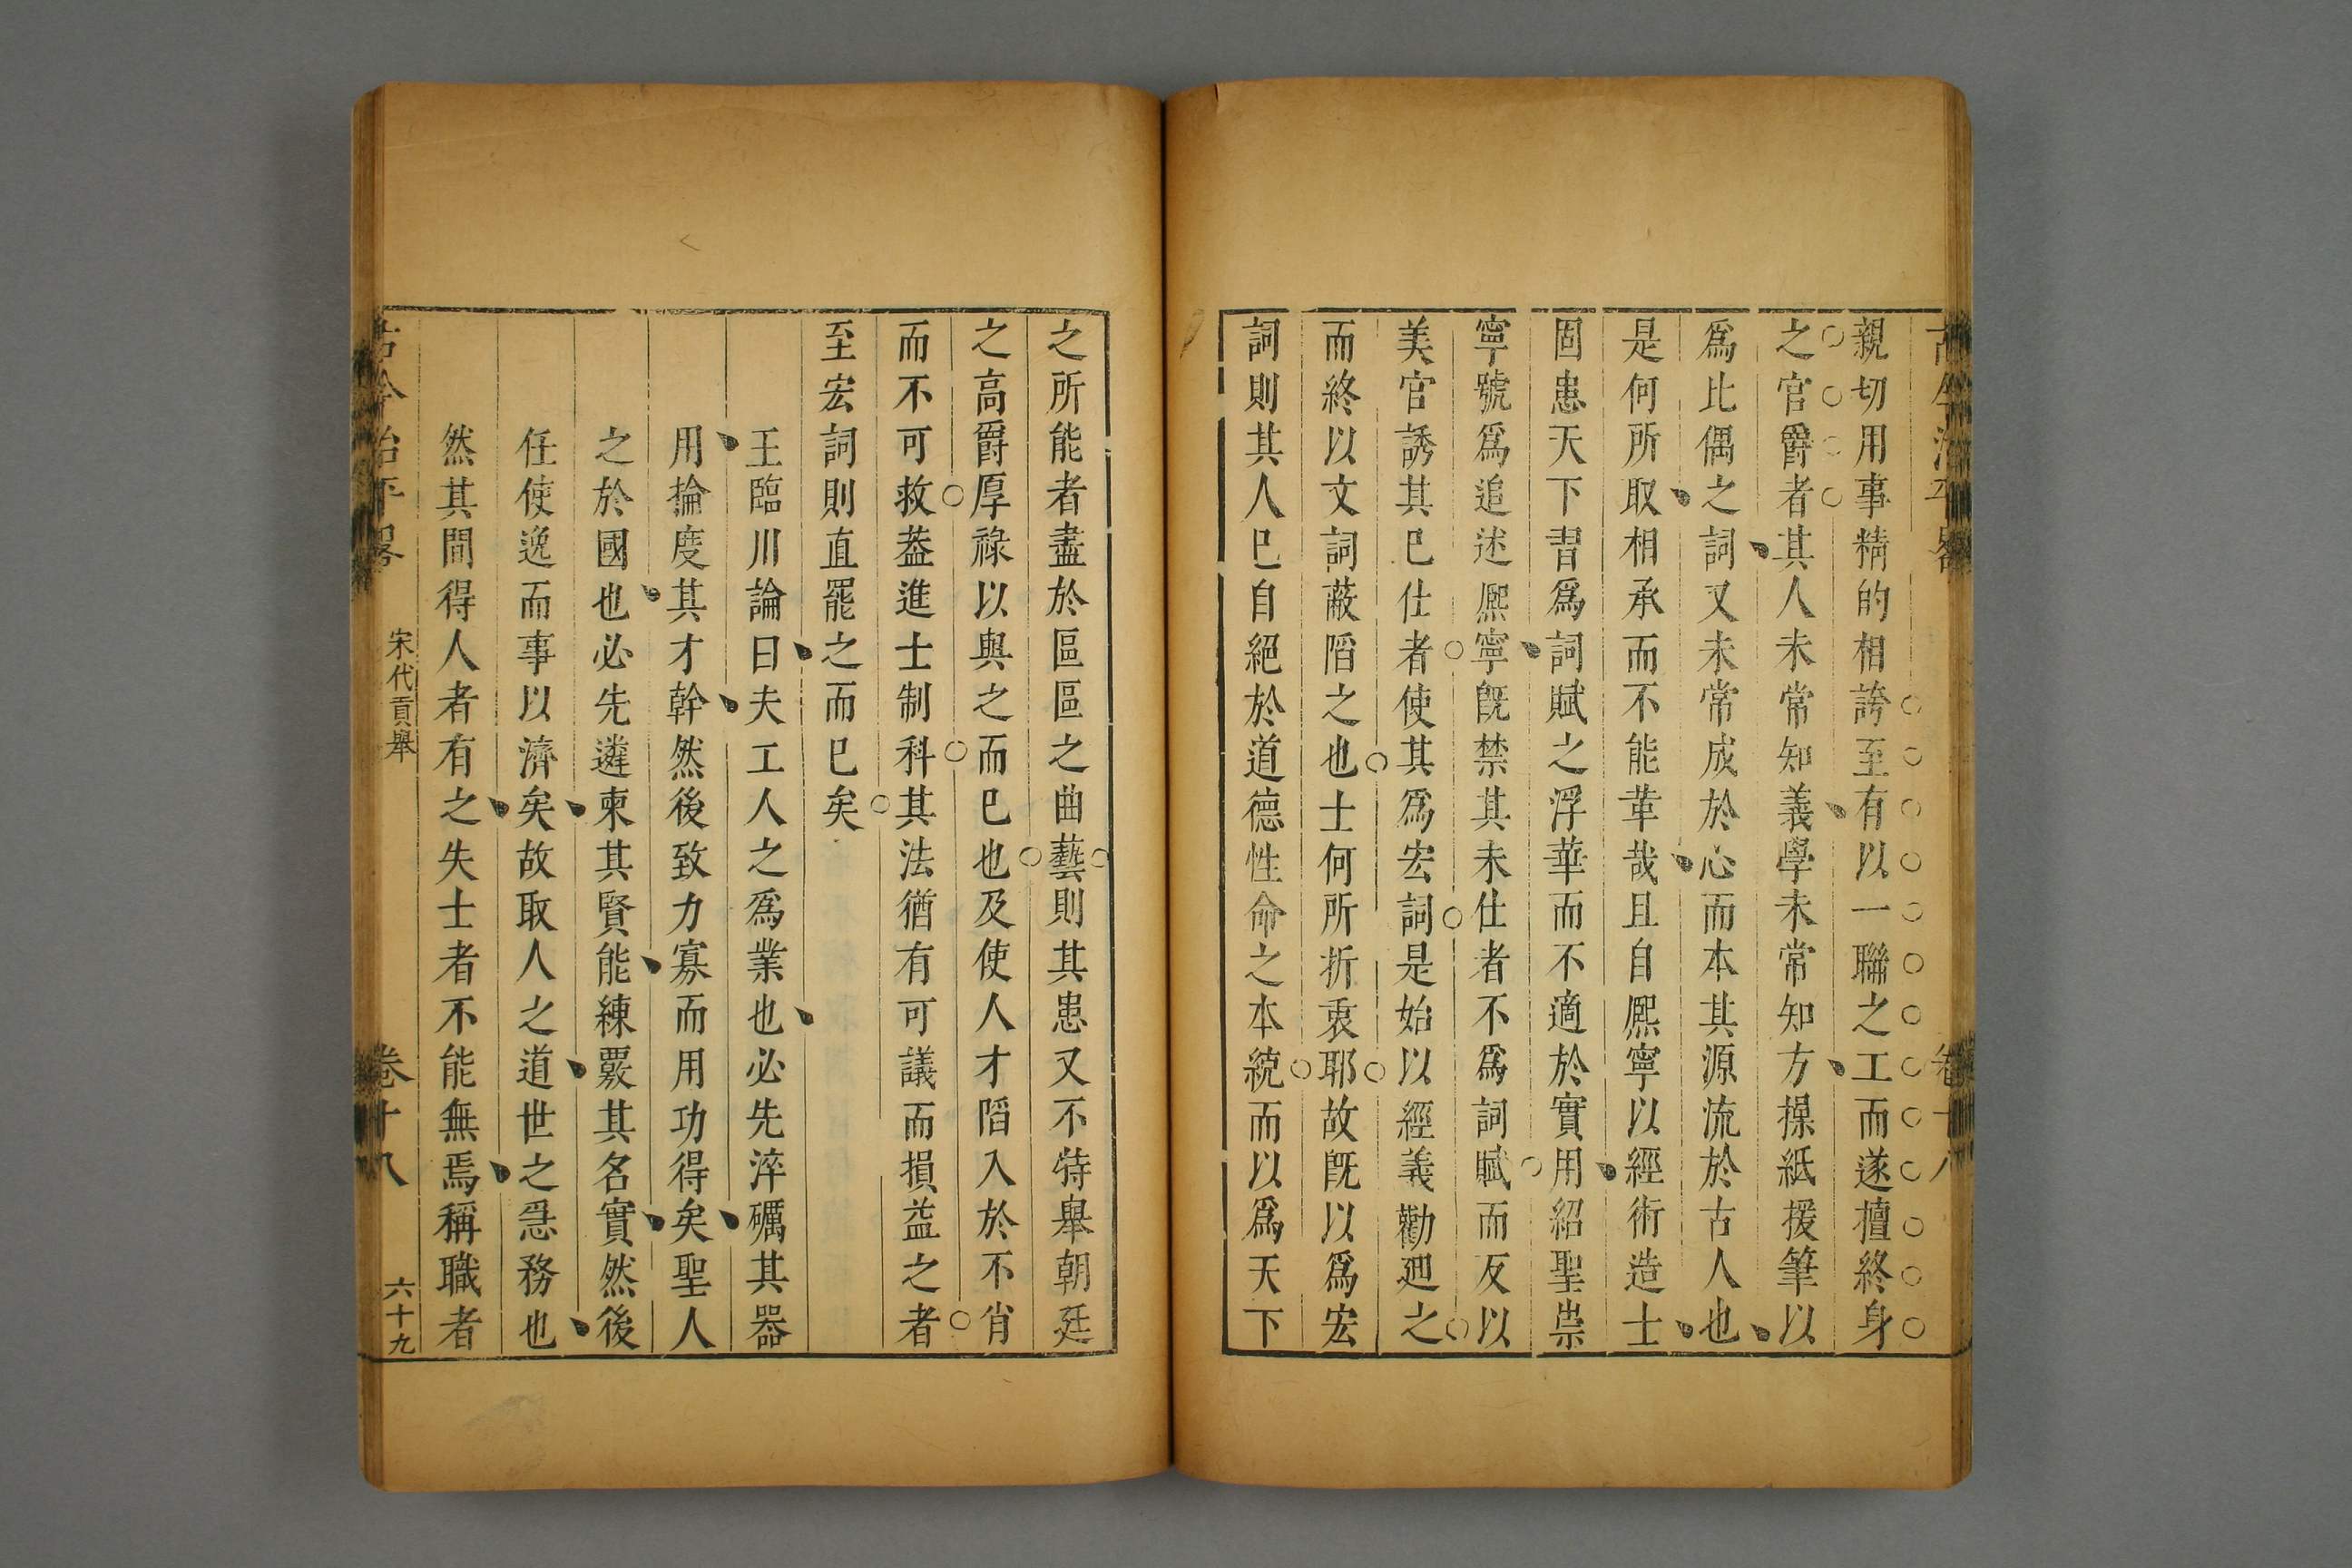 古今治平畧
卷十八
親切用事精的相誇至有以一聯之工而遂擅終身
之官爵者其人未常知義學未常知方操紙援筆以
爲比偶之詞又未常成於心而本其源流於古人也
是何所取相承而不能革哉且自熈寧以經術造士
固患天下習爲詞賦之浮華而不適於實用紹聖崇
寧號爲追述熈寧旣禁其未仕者不爲詞賦而反以
美官誘其已仕者使其爲宏詞是始以經義勸廻之
而終以文詞蔽䧟之也士何所折衷耶故旣以爲宏
詞則其人已自絕於道德性命之本統而以爲天下
之所能者盡於區區之曲藝則其患又不特舉朝廷
之高爵厚祿以與之而已也及使人才䧟入於不肖
而不可救葢進士制科其法猶有可議而損益之者
至宏詞則直罷之而已矣
王臨川論曰夫工人之爲業也必先淬礪其器
用掄度其才幹然後致力寡而用功得矣聖人
之於國也必先遴柬其賢能練覈其名實然後
任使逸而事以濟矣故取人之道世之急務也
然其間得人者有之失士者不能無焉稱職者
古今治平畧
宋代貢舉
卷十八
六十九